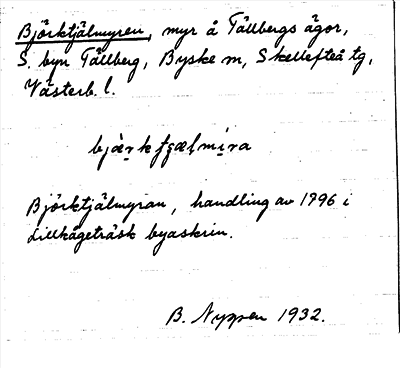 Björktjälmyren, myr å Tällbergs ägor,
S. byn Tällberg, Byske sn, Skellefteå tg,
Västerb. l.
Björktjälmyran, handling av 1796 i
Lillkågeträsk byaskrin.
B. Nyman 1932.